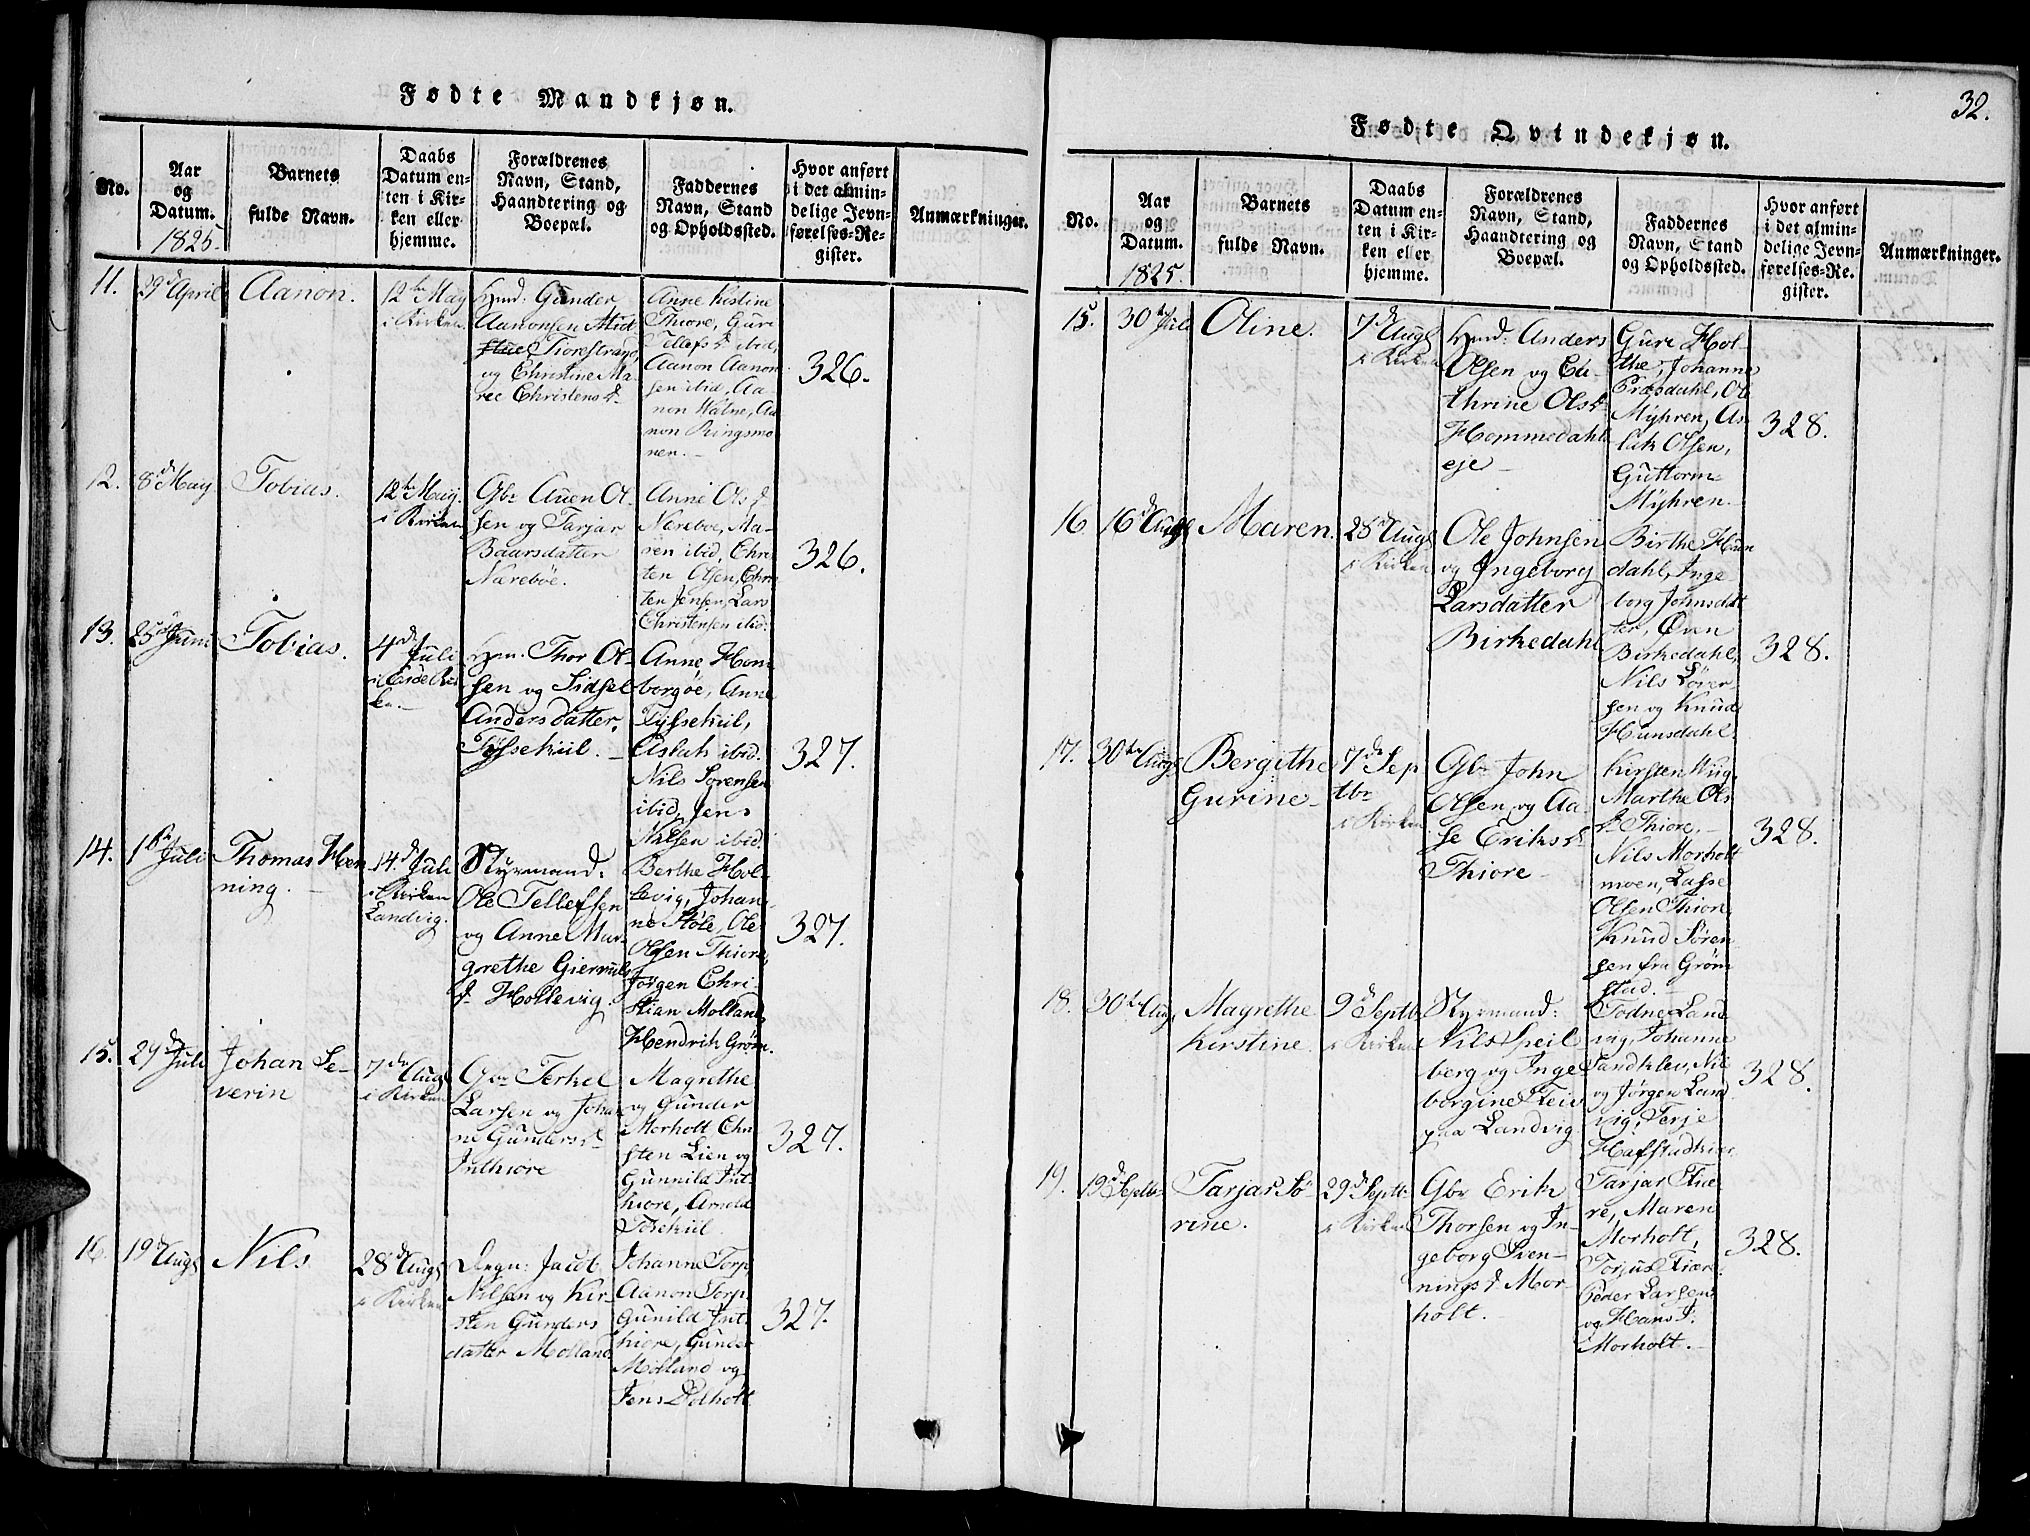 Fødte Mandkjøn.
No.
Aar
og
Datum.
1825.
Barnets
fulde Navn.
Daabs
Datum en-
ten i Kir-
ken eller
hjemme.
Forældrenes
Navn, Stand,
Haandtering og
Boepæl.
Faddernes
Navn, Stand
og Opholdssted.
Hvor anført
i det almin-
delige Jevn-
førelses-Re-
gister.
Anmærkninger.
11.
29d April
Aanon.
12te May
i Kirken
Hmd: Gunder
Aanonsen Mid
stue Tiorestrand,
og Christine Ma-
rie Christensd.
Anne Kirstine
Thiore, Guri
Tellefsd. ibid,
Aanon Aanon
sen ibid, Aa
non Walne, Aa
non Ringsmo
nen.
326.
12.
8d May
Tobias.
12te May.
i Kirken
Gbr Auen Ol-
sen og Tarjar
Baarsdatter
Nærebøe.
Anne Olsd.
Nærebøe, Ma-
ren ibid, Chri
sten Olsen, Chri
sten Jensen, Lars
Christensen ibid:
326.
13.
25d Juni
Tobias.
4d Juli
i Eide Kir
ken.
Hm. Thor Ol-
sen og Sidsel
Andersdatter,
Tyssekiil.
Anne Hom
borgøe, Anne
Tyssekiil,
Aslak ibid.
Nils Sørensen
ibid, Jens
Nilsen ibid.
327.
14.
1ste Juli
Thomas Hen
ning.
14d Juli
i Kirken
Landvig.
Styrmand:
Ole Tellefsen
og Anne Mar-
grethe Giermuls
d. Hollevig.
Berthe Hol-
levig, Johan-
ne Støle, Ole
Olsen Thiore,
Jørgen Chri-
stian Molland,
Hendrik Grøm.
327.
15.
29d Juli
Johan Se-
verin
7de Augs
i Kirken
Gbr Terkel
Larsen og Johan
ne Gundersd.
Inthiore
Magrethe
og Gunder
Morholt Chri
sten Lien og
Gunnild Int
hiore, Arnold
Tosekiil.
327.
16.
19d Augs
Nils
28d Augs
i Kirken
Degn: Jacob
Nilsen og Kir-
sten Gunders
datter Molland
Johanne Torp,
Aanon Torp,
Gunild Int-
hiore, Gunder
Molland og
Jens Dolholt
327.
32.
Fødte Qvindekjøn.
No.
Aar
og
Datum.
1825.
Barnets
fulde Navn.
Daabs
Datum en-
ten i Kir-
ken eller
hjemme.
Forældrenes
Navn, Stand,
Haandtering og
Boepæl.
Faddernes
Navn, Stand
og Opholdssted.
Hvor anført
i det almin-
delige Jevn-
førelses-Re-
gister.
Anmærkninger.
15.
30te Juli
Oline.
7de Augs
i Kirken
Hmd: Anders
Olsen og Ca-
thrine Olsd.
Hommedahls
eje
Gure Hol-
the, Johanne
Præsdahl, Ole
Myhren, As-
lak Olsen,
Guttorm
Myhren.
328.
16
16d Augs
Maren.
28d Augs
i Kirken
Ole Johnsen
og Ingeborg
Larsdatter
Birkedahl
Birthe Hun
dahl, Inge
borg Johnsdat
ter, Øven
Birkedahl,
Nils Lover-
sen og Knud
Hunsdahl.
328.
17.
30te Augs
Bergithe
Gurine
7de Sep
tbr
i Kirken
Gbr John
Olsen og Aa-
se Eriksd.
Thiore
Kirsten Aug,
Marthe Ols
d. Thiore,
Nils Morholt
moen, Lasse
Olsen Thiore
Knud Søren
sen fra Grøm
stad.
328.
18.
30te Aug,
Magrethe
Kirstine.
9d Septb.
i Kirken
Styrmand:
Nils Speil
berg og Inge
borgine Fleiv
paa Landvig
Todne Land
vig, Johanne
Sandklev, Nil
og Jørgen Land
vig, Terje
Hafstadkier
328.
19.
19d Septb.
Tarjar Sø-
rine.
29d Septb.
i Kirken
Gbr Erik
Thorsen og In-
geborg Sven-
ningsd Mor-
holt.
Tarjar Tiø-
re, Maren
Morholt,
Torjus Tiøre
Peder Larsen
og Hans J.
Morholt.
328.